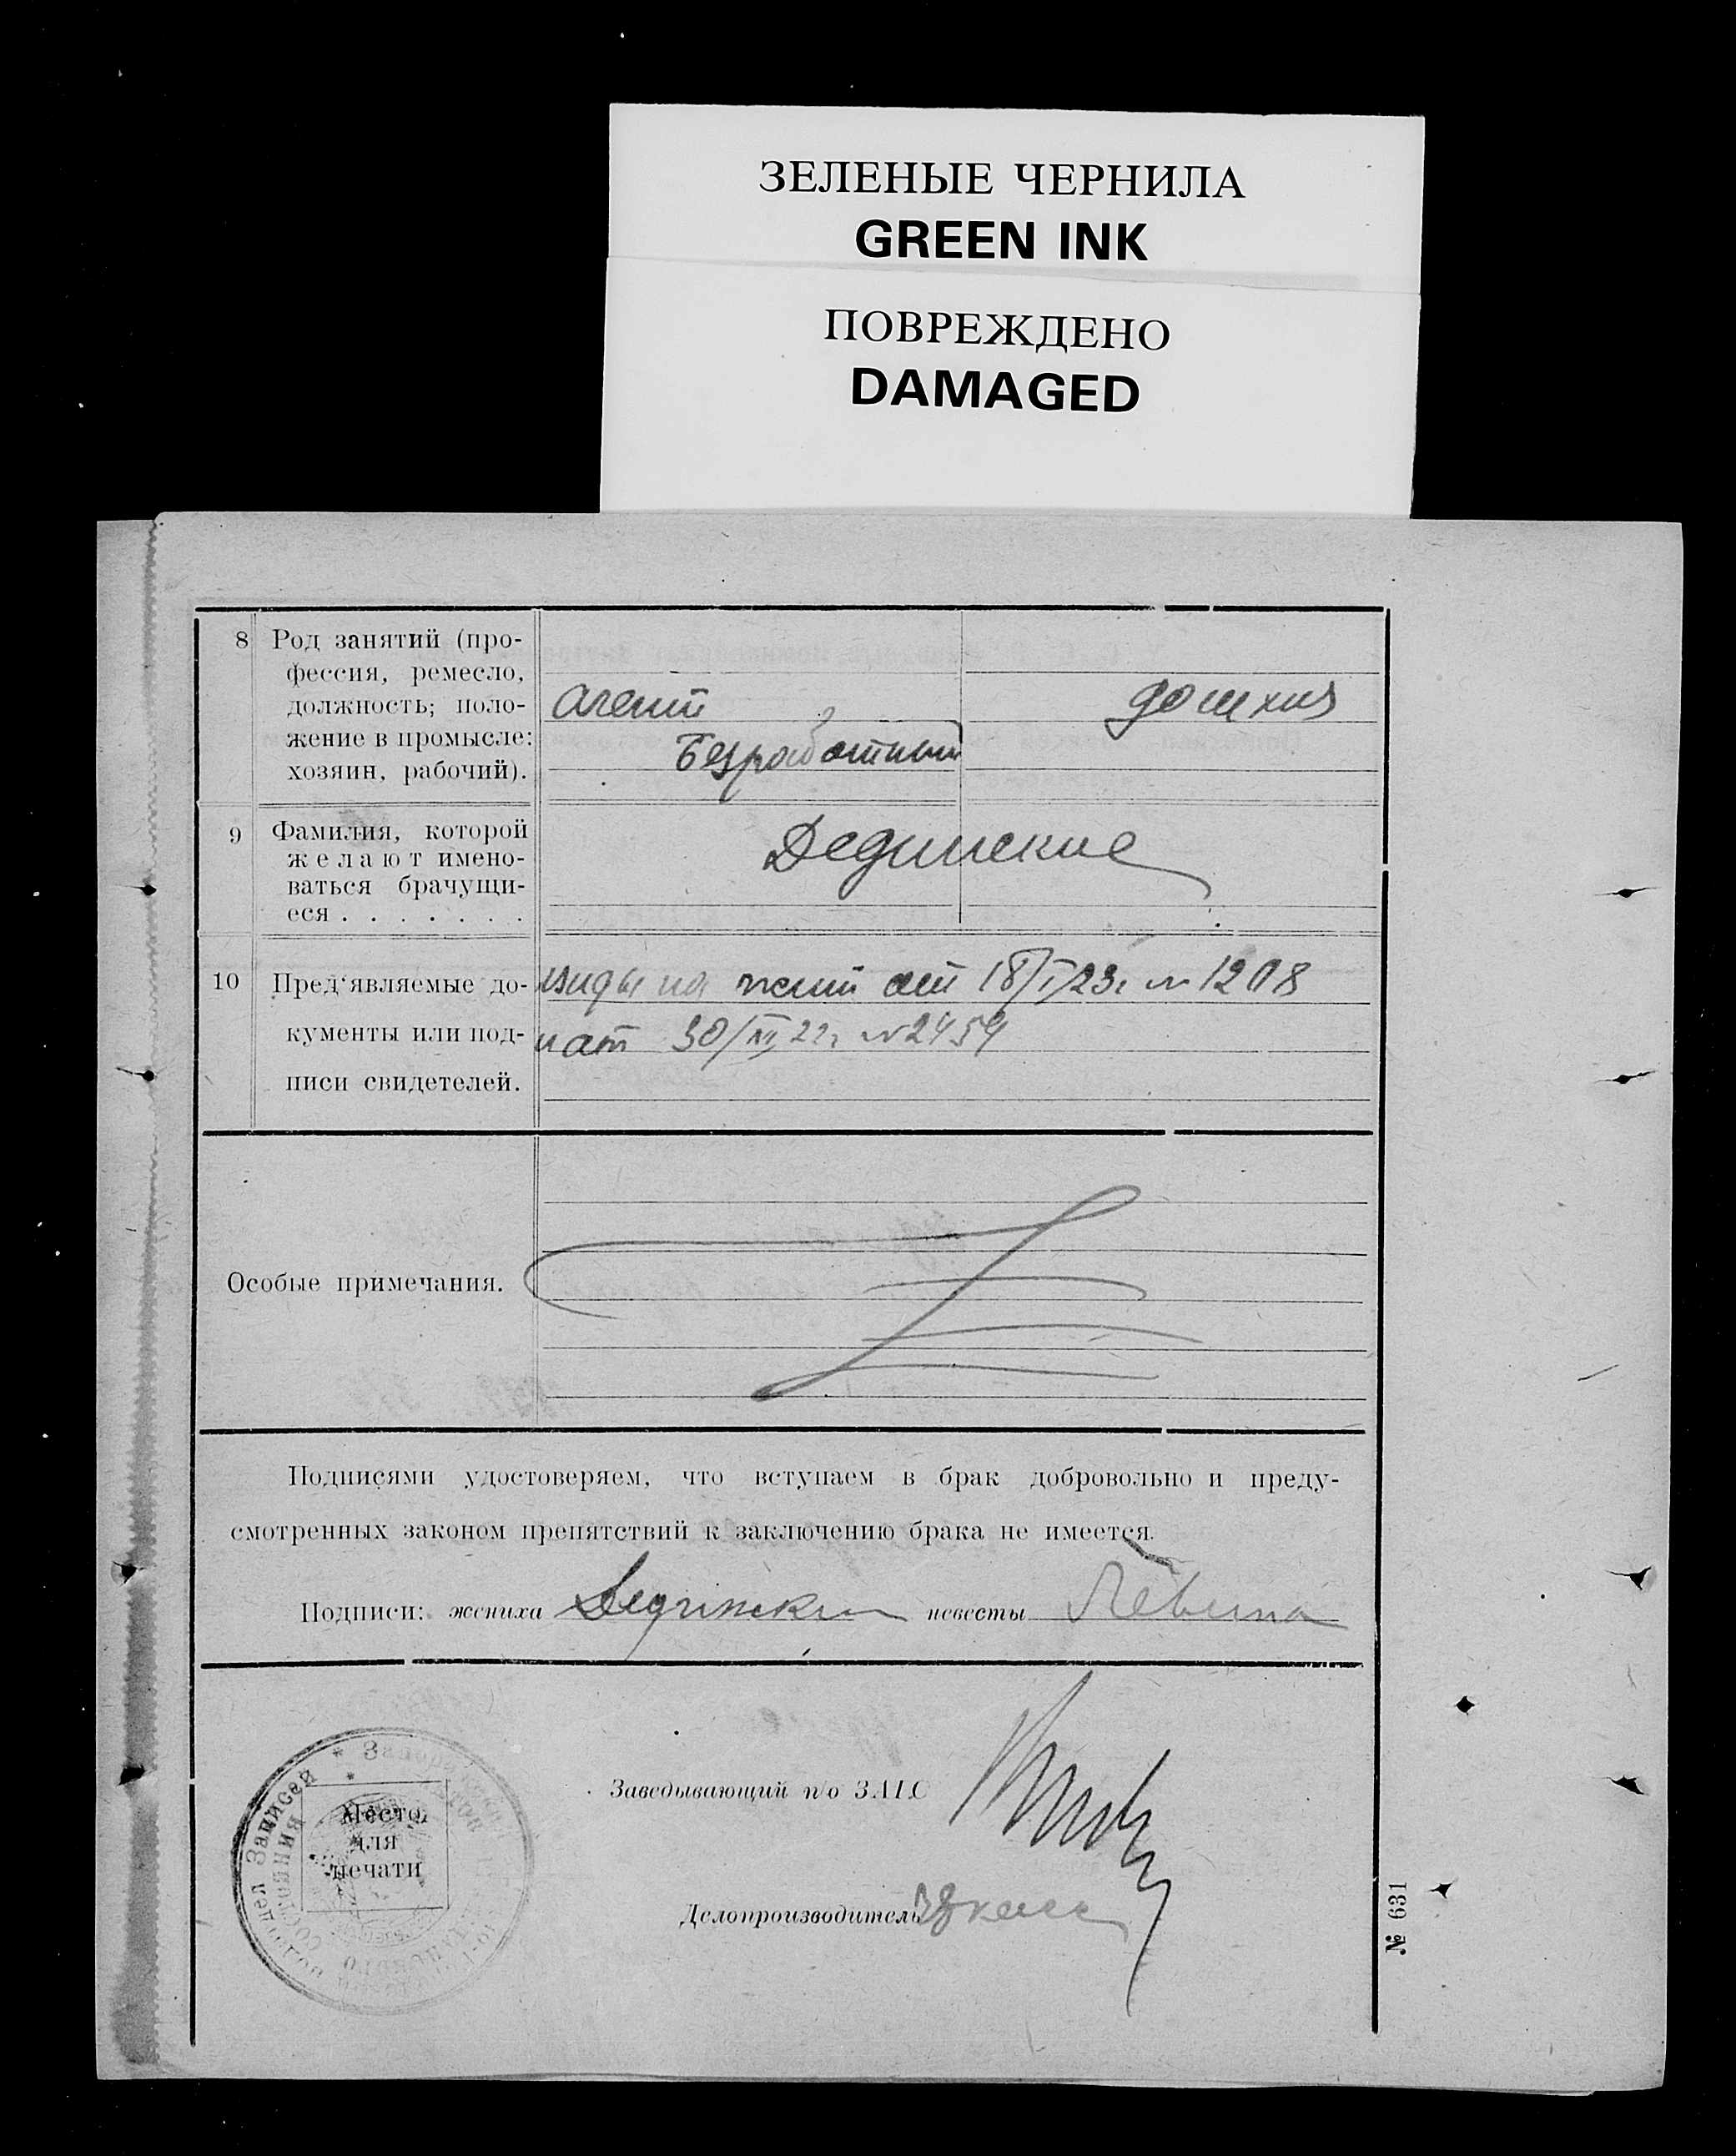 ЗЕЛЕНЫЕ ЧЕРНИЛА
GREEN INK
ПОВРЕЖДЕНО
DAMAGED
8 Род занятий (про-
фессия, ремесло,
должность; поло-
жение в промысле:
хозяин, рабочий).
агент
Безработный
дом хоз
9 Фамилия, которой
желают имено-
ваться брачущи-
еся . . . . . . .
Дединские
10 Пред'являемые до-
кументы или под-
писи свидетелей.
виды на жит от 18/I 23г № 1208
и от 30/ 22г № 2454
Особые примечания.
Подписями удостоверяем, что вступаем в брак добровольно и преду-
смотренных законом препятствий к заключению брака не имеется.
Подписи: жениха Дединский невесты Левина
Заведывающий п/о ЗАГС
Делопроизводитель
Место
для
печати
подотдел Записей
состояния
№ 631